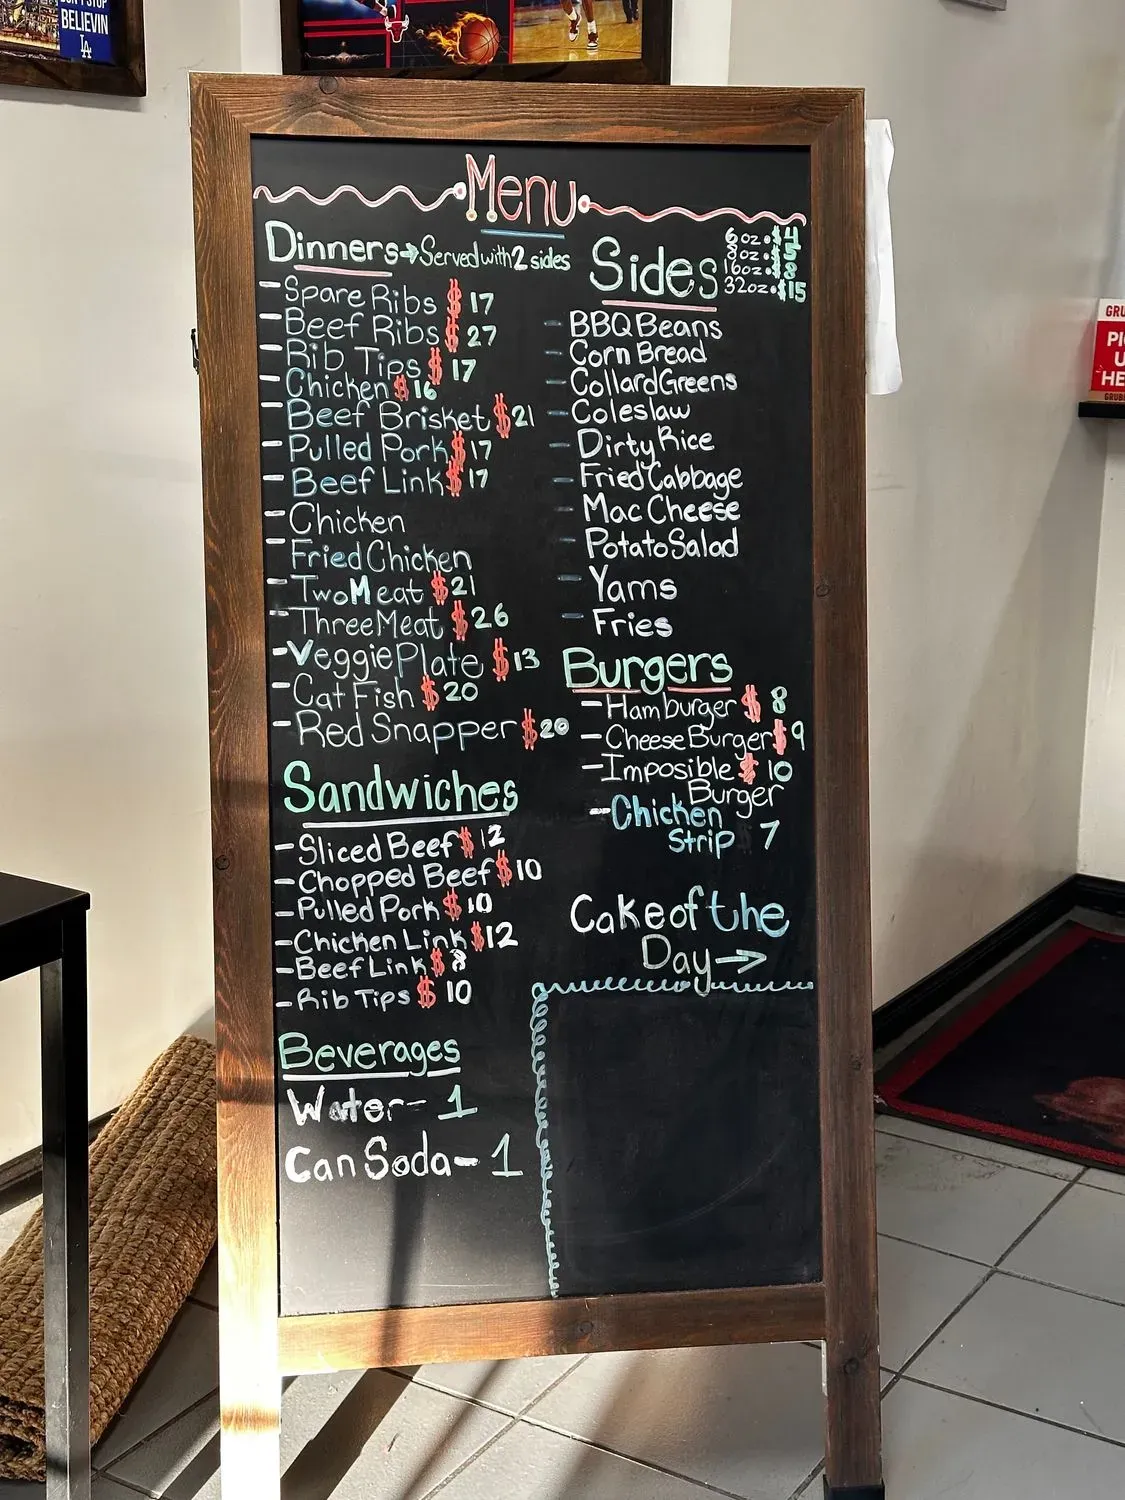 BELIEVIN
LA
Menu
Dinners→Served with 2 sides
- Spare Ribs $17
- Beef Ribs $27
- Rib Tips $17
- Chicken $16
- Beef Brisket $21
- Pulled Pork $17
- Beef Link $17
- Chicken
- Fried Chicken
- Two Meat $21
- Three Meat $26
- Veggie Plate $13
- Cat Fish $20
- Red Snapper $20
Sandwiches
- Sliced Beef $12
- Chopped Beef $10
- Pulled Pork $10
- Chicken Link $12
- Beef Link $8
- Rib Tips $10
Beverages
Water- 1
Can Soda- 1
Sides
6oz.$4
8oz.$5
16oz.$8
32oz.$15
- BBQ Beans
- Corn Bread
- Collard Greens
- Coleslaw
- Dirty Rice
- Fried Cabbage
- Mac Cheese
- Potato Salad
- Yams
- Fries
Burgers
- Hamburger $8
- Cheese Burger $9
- Imposible $10
Burger
- Chicken
Strip 7
Cake of the
Day→
GRU
PI
U
HE
GRUB